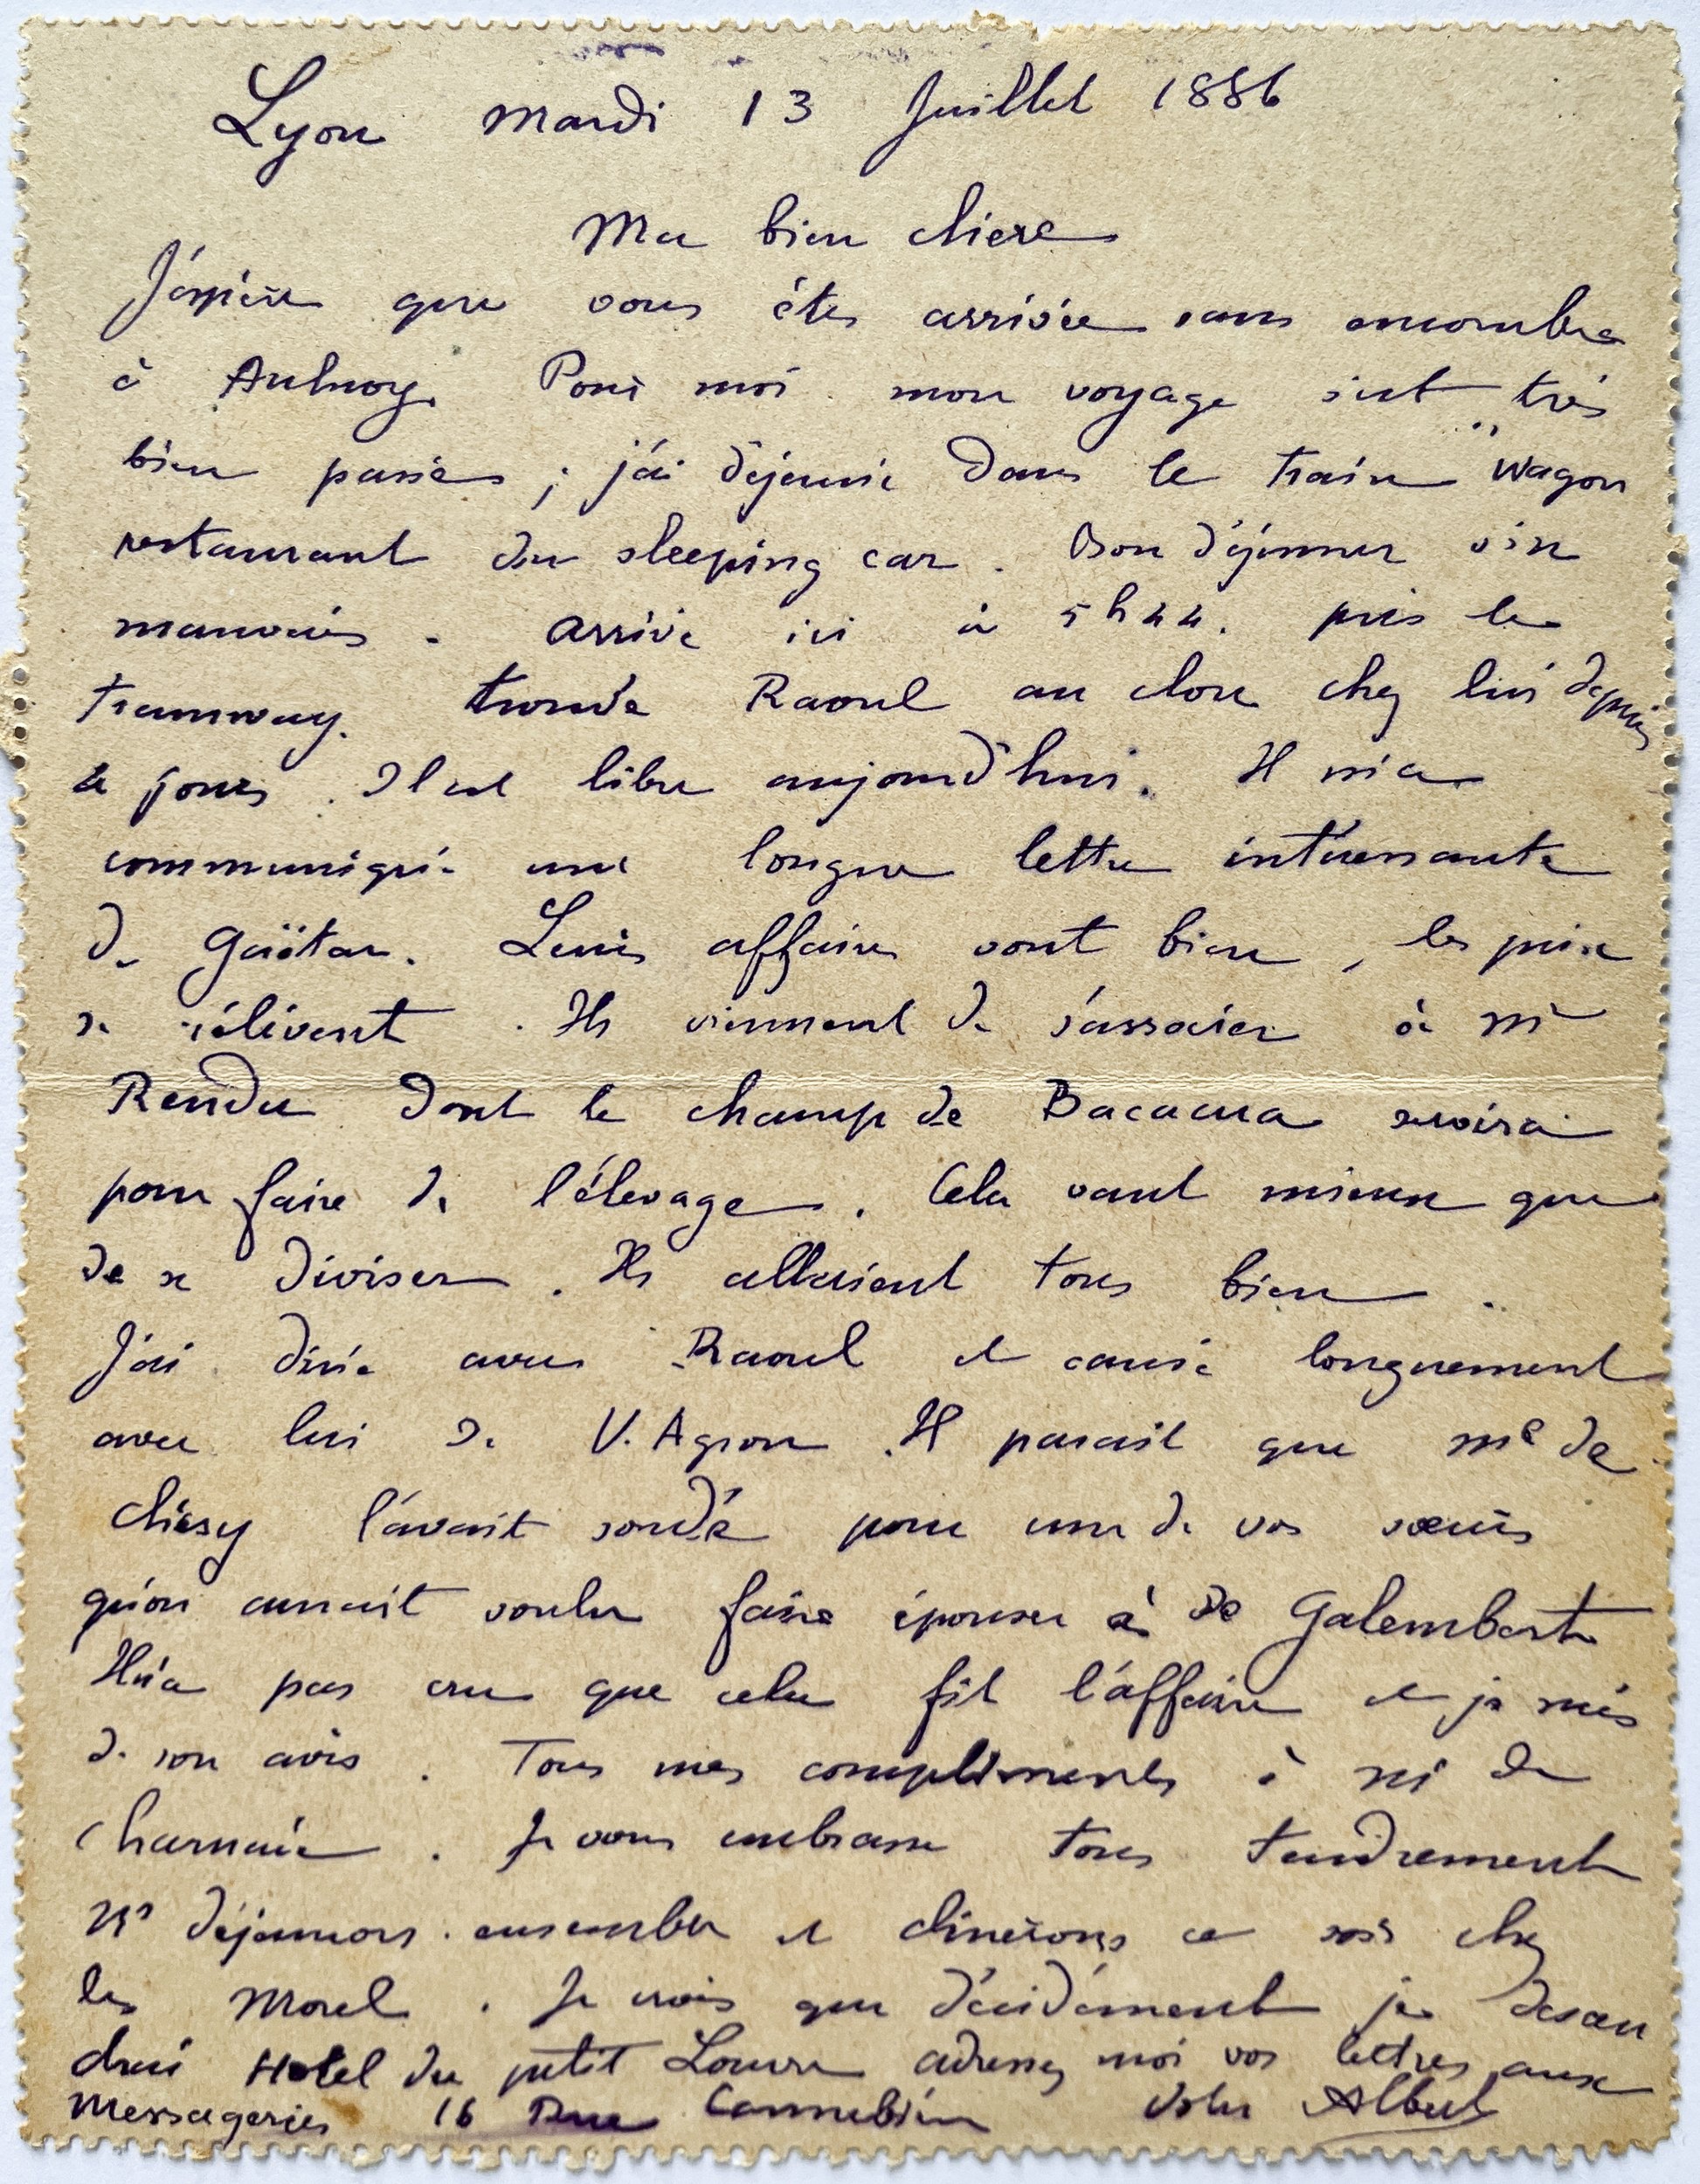 Lyon mardi 13 Juillet 1886
Ma bien chere
J'éspère que vous étes arrivée sans encombre
à Aulnoy. Pour moi mon voyage s'est très
bien passé ; j'ai déjeuné dans le train "Wagon
restaurant du sleeping car. Bon déjeuner vin
mauvais. arrivé ici à 5h44. pris le
tramway. trouvé Raoul au clou chez lui depuis
4 jours. Il est libre aujourd'hui. Il m'a
communiqué une longue lettre intéressante
de Gaëtan. Leurs affaires vont bien, les prix
se rélèvent. Ils viennent de s'associer à Mr
Rendu dont le champ de Bacacua servira
pour faire de l'élevage. Cela vaut mieux que
de se diviser. Ils allaient tous bien.
J'ai diné avec Raoul et causé longuement
avec lui de V. Agron. Il parait que Me de
Chézy l'avait sondé pour une de vos soeurs
qu'on aurait voulu faire épouser à de Galembert
Il n'a pas cru que cela fit l'affaire et je suis
de son avis. Tous mes compliments à Me de
Charnacé. Je vous embrasse tous tendrement
Ns déjeunons ensemble et dinerons ce soir chez
les Morel. Je crois que décidément je descen
drai Hotel du petit Louvre adressez moi vos lettres aux
Messageries 16 Rue Cannebière Votre Albert